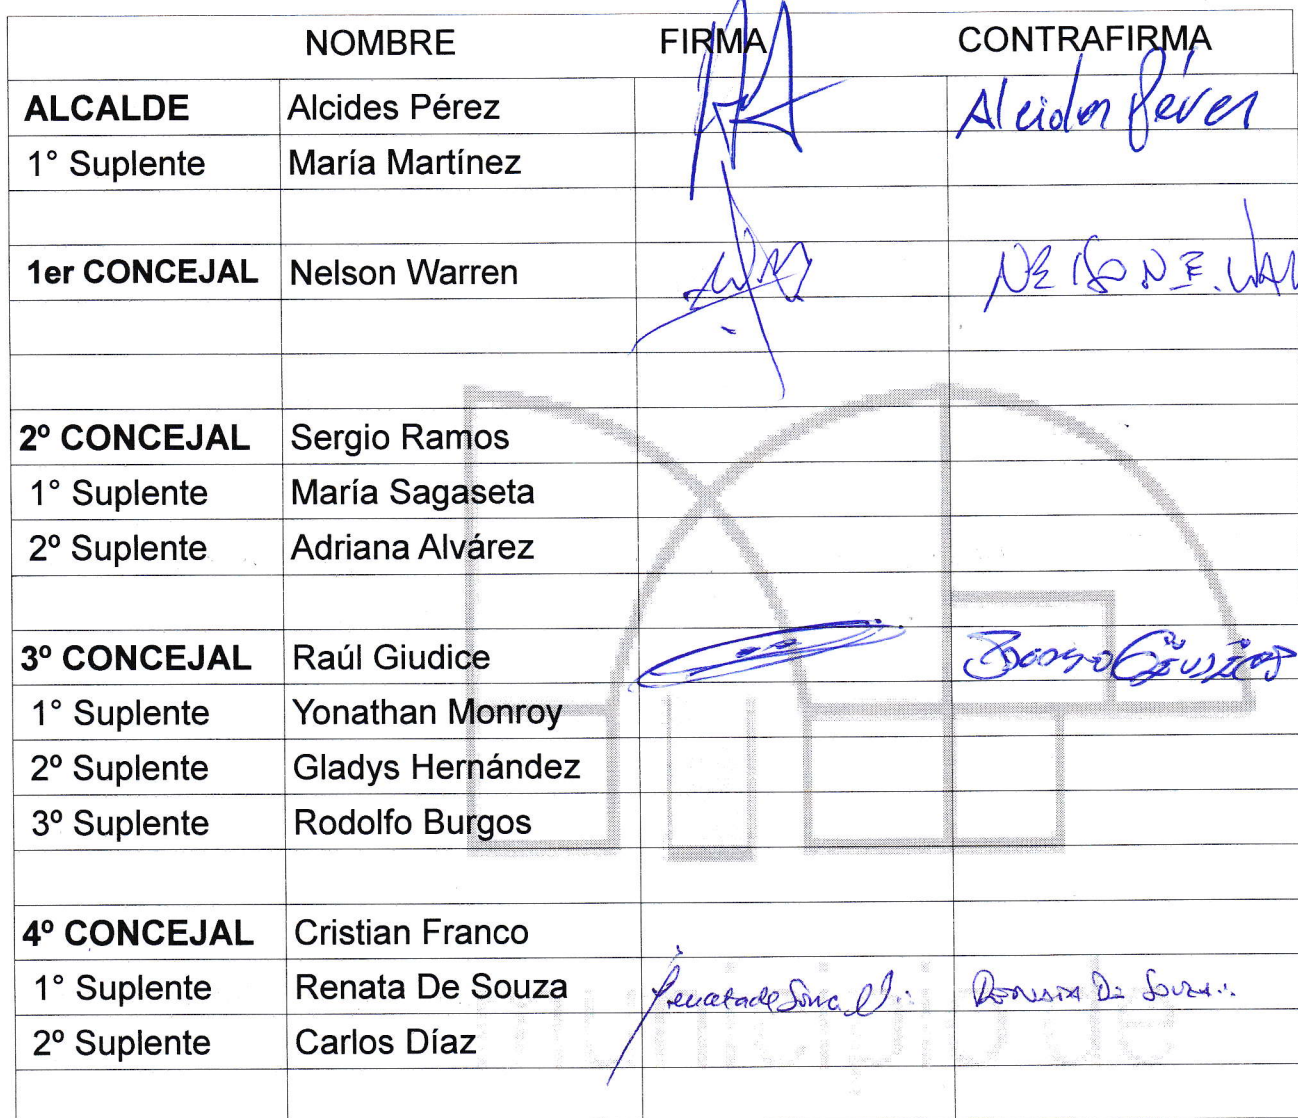 NOMBRE FIRMA CONTRAFIRMA
ALCALDE Alcides Pérez Alcides Pérez
1° Suplente María Martínez
1er CONCEJAL Nelson Warren NELSON E. WAR
2º CONCEJAL Sergio Ramos
1° Suplente María Sagaseta
2º Suplente Adriana Alvárez
3º CONCEJAL Raúl Giudice
1° Suplente Yonathan Monroy
2º Suplente Gladys Hernández
3º Suplente Rodolfo Burgos
4º CONCEJAL Cristian Franco
1° Suplente Renata De Souza Renata de Souza RENATA DE SOUZA
2º Suplente Carlos Díaz
municipio de